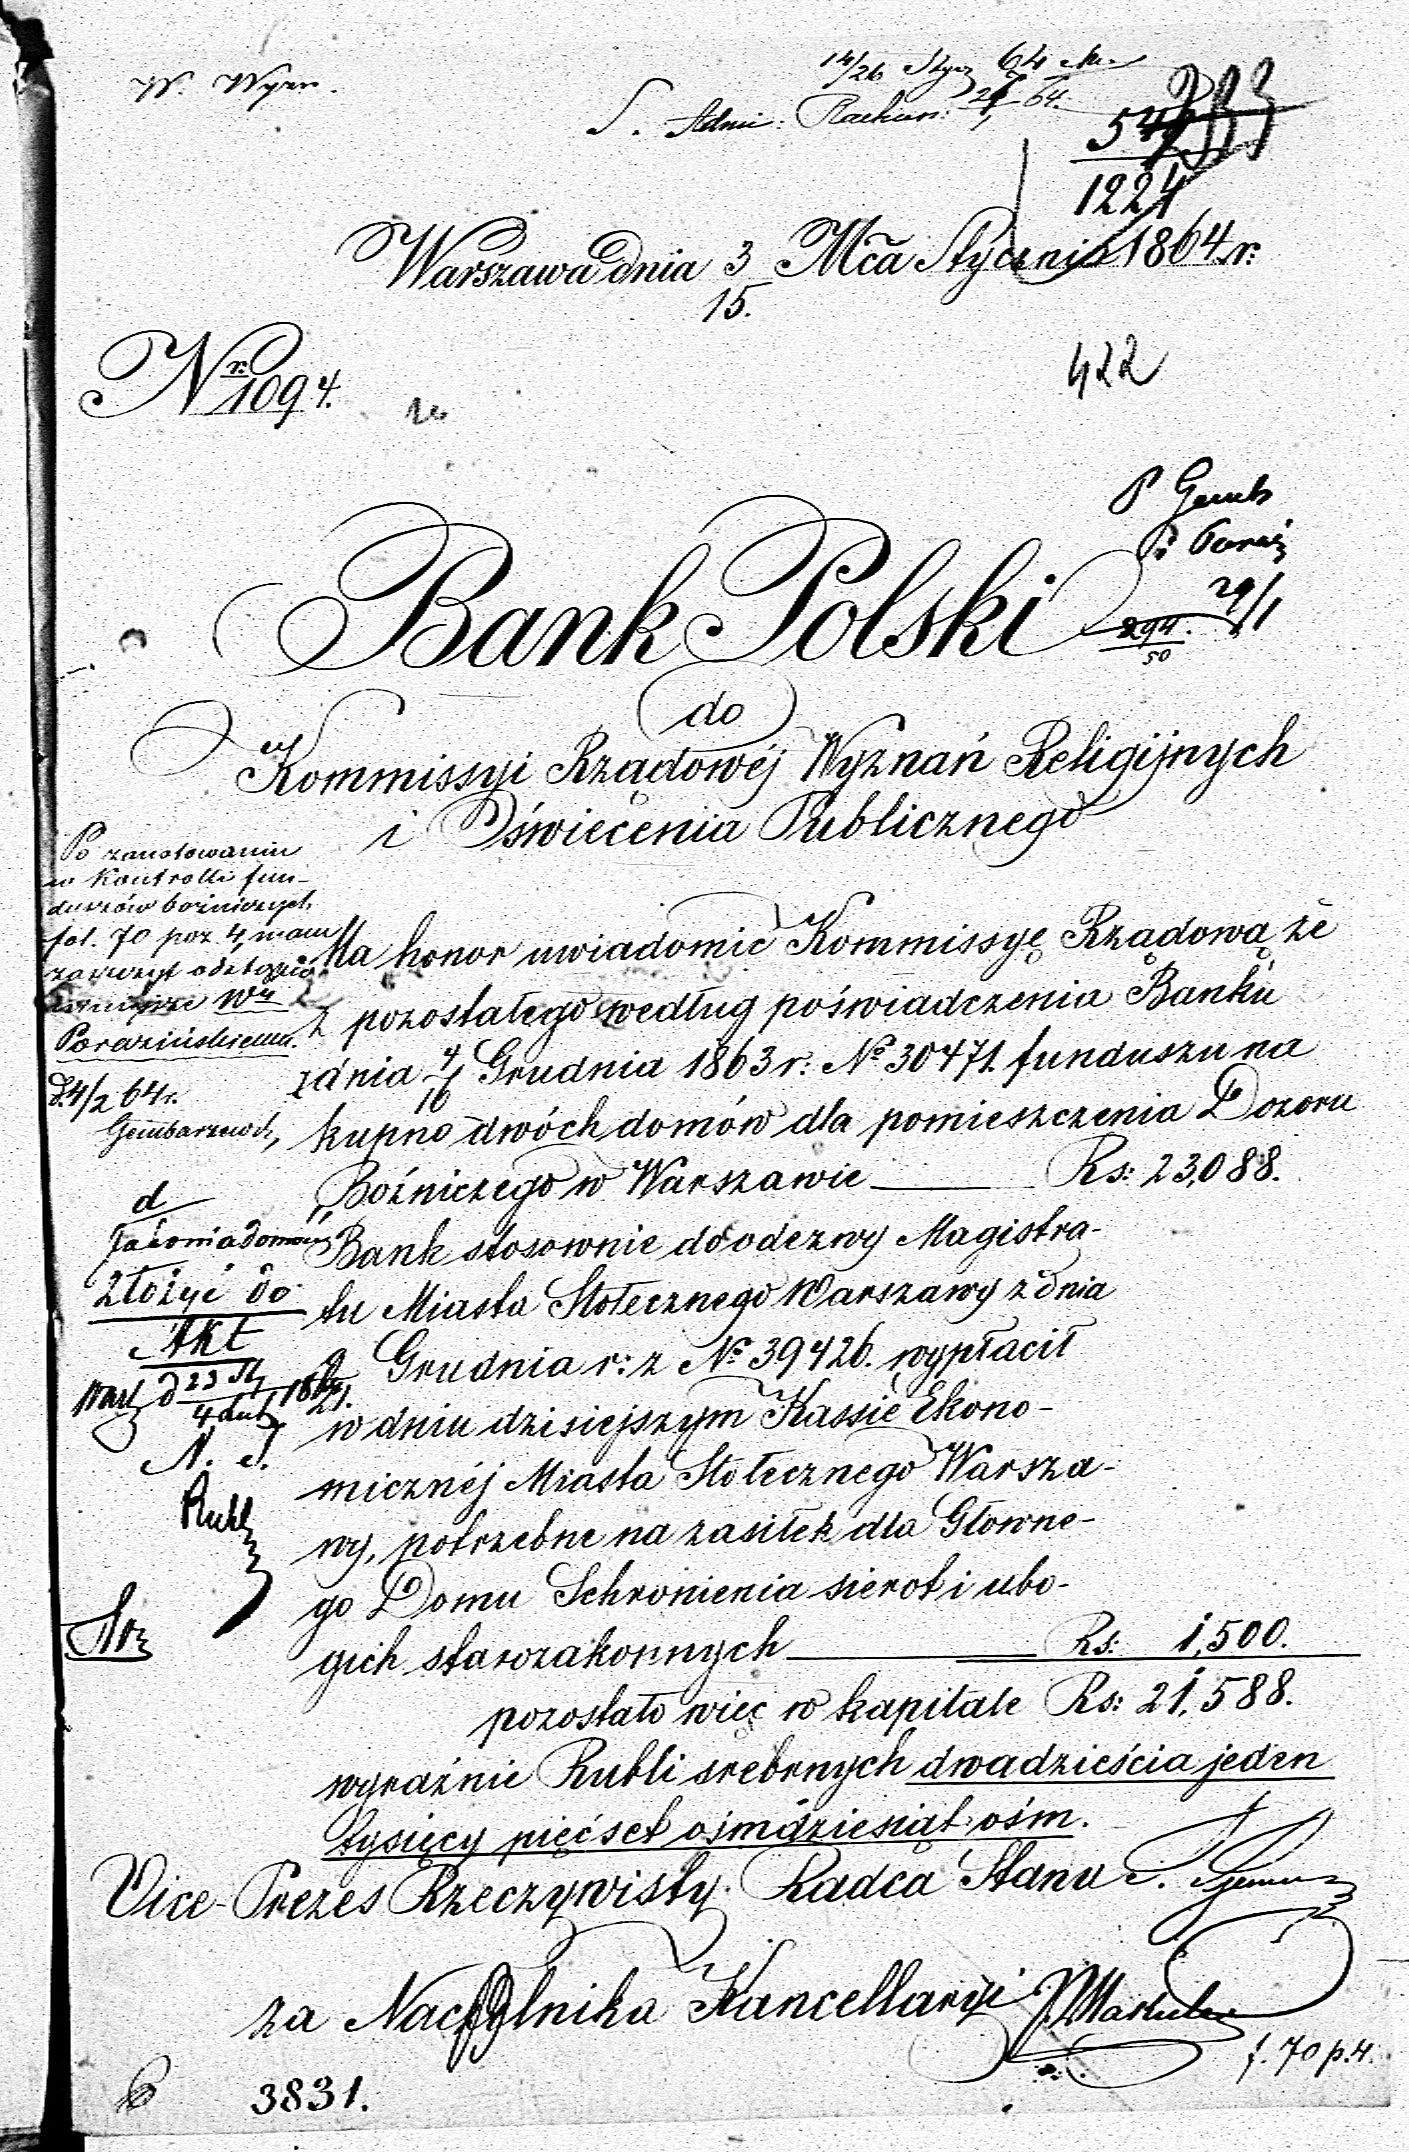 W. Wyzn.
14/26 Stycz 64
S. Admi: Rachun: 64.
1224
Warszawa dnia 3/15. Mca Stycznia 1864 r:
Nr. 1094.
422
P Gemb
29/1
294.
50
Bank Polski
do
Kommissyi Rządowéj Wyznań Religijnych
i Oświecenia Publicznego
Po zanotowaniu
w kontrolli fun-
duszów bożniczych
fol. 70 poz 4, mam
zaszczyt odstąpić
niniejsze Wu
Porazińskiemu.
d. 4/2 64 r.
Gembarzewski
d
Jako wiadomość
złożyć do
Akt
Warsz d 23 St/4 Lut 1864
N. S.
Ma honor uwiadomić Kommissyę Rządową że
z pozostałego według poświadczenia Banku
z dnia 4/16 Grudnia 1863 r: No 30471. funduszu na
kupno dwóch domów dla pomieszczenia Dozoru
Bożniczego w Warszawie Rs: 23,088.
Bank stosownie do odezwy Magistra-
tu Miasta Stołecznego Warszawy z dnia
9/21. Grudnia r: z No 39426. wypłacił
w dniu dzisiejszym Kassie Ekono-
micznéj Miasta Stołecznego Warsza-
wy, potrzebne na zasiłek dla Głowne-
go Domu Schronienia sierot i ubo-
gich starozakonnych Rs: 1,500.
pozostało więc w kapitale Rs: 21,588.
wyraźnie Rubli srebrnych dwadzieścia jeden
tysięcy pięćset ośmdziesiąt ośm.
Vice-Prezes Rzeczywisty Radca Stanu
za Naczelnika Kancellaryi
f. 70 p. 4.
3831.